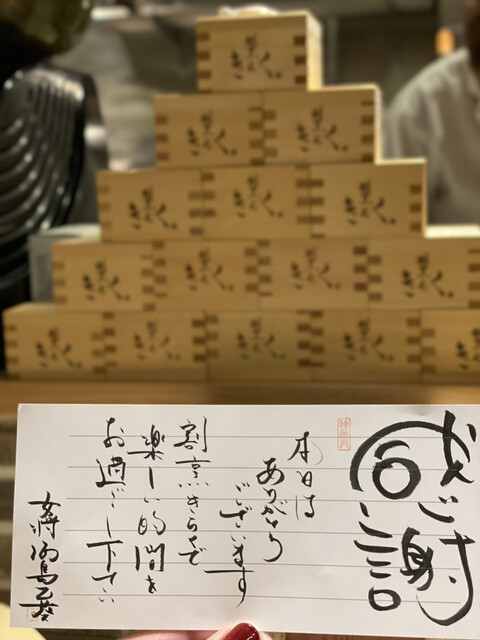 きらく。
きらく。
きらく。
きらく。
きらく。
きらく。
きらく。
きらく。
きらく。
きらく。
きらく。
きらく。
きらく。
きらく。
感謝
神無月
本日は
ありがとう
ございます
割烹きらくで
楽しい時間を
お過ごし下さい
女将